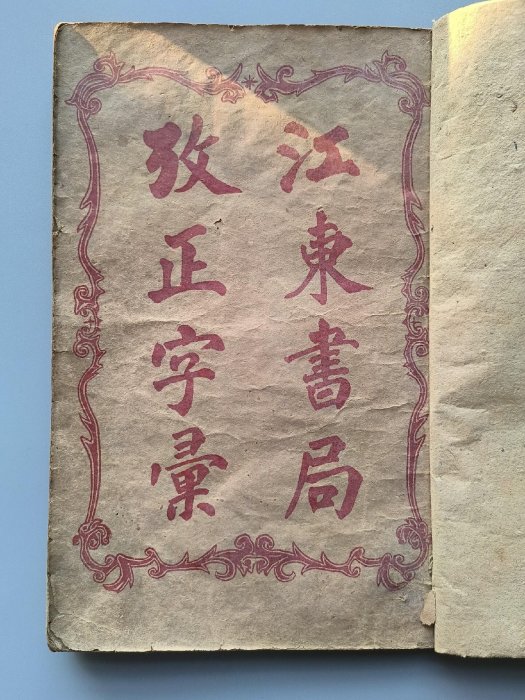 江東書局
攷正字彙